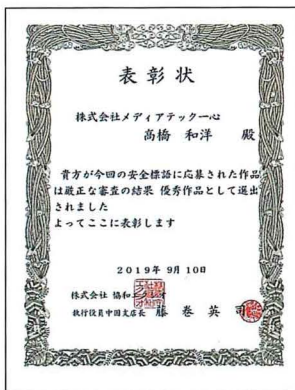 表彰状
株式会社メディアテック一心
高橋 和洋 殿
貴方が今回の安全標語に応募された作品
は厳正な審査の結果 優秀作品として選出
されました
よってここに表彰します
2019年 9月 10日
株式会社 協和
執行役員中国支店長 藤巻英司